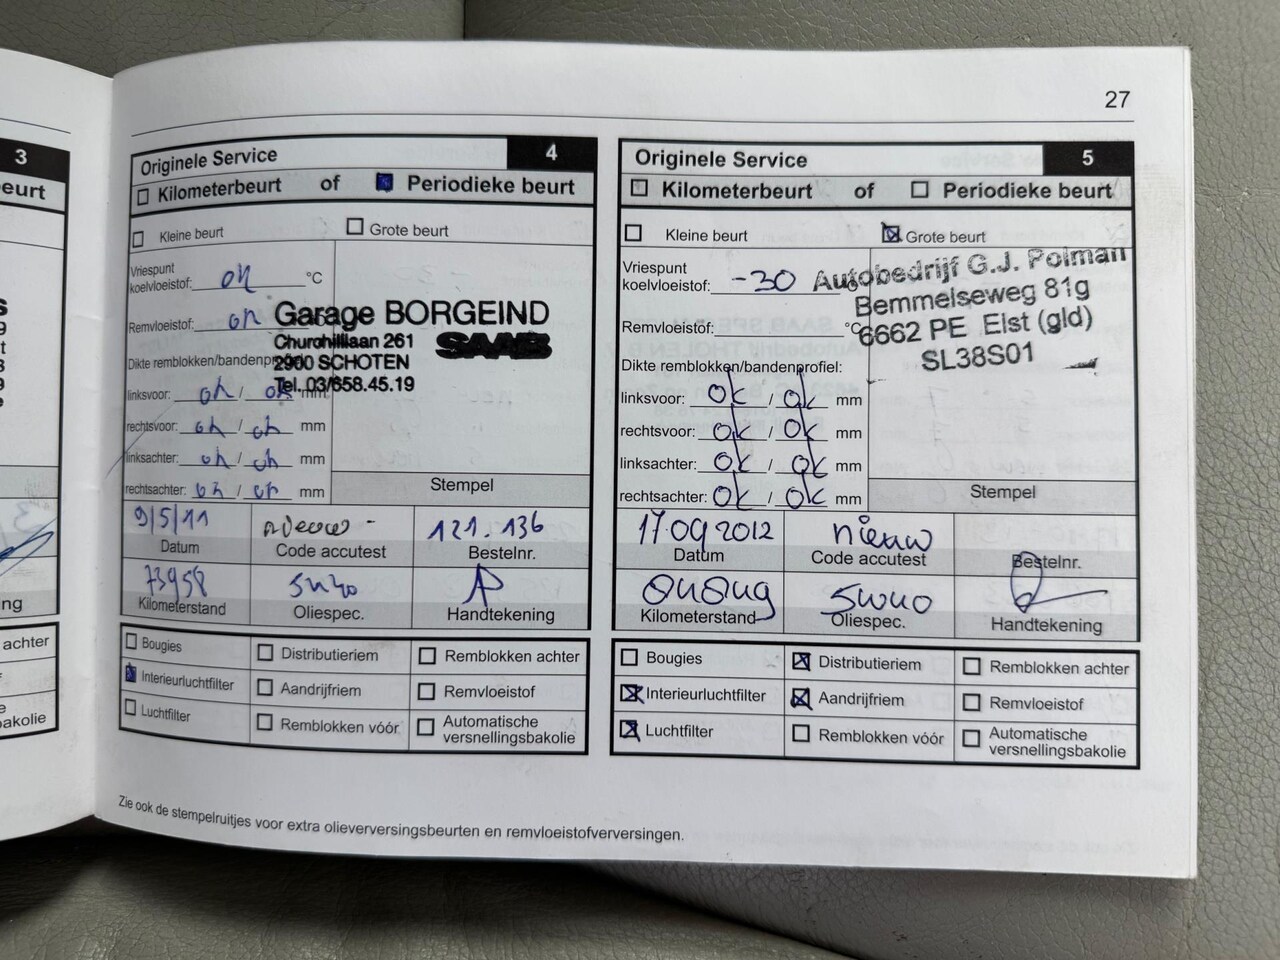 27
3
eurt
ng
achter
bakolie
Originele Service 4
Kilometerbeurt of Periodieke beurt
Kleine beurt Grote beurt
Vriespunt
koelvloeistof: ok °C
Remvloeistof: ok
Garage BORGEIND
Churchilllaan 261
2900 SCHOTEN
Tel. 03/658.45.19
SAAB
Dikte remblokken/bandenprofiel:
linksvoor: ok / ok mm
rechtsvoor: ok / ok mm
linksachter: ok / ok mm
rechtsachter: ok / ok mm
Stempel
9/5/11 121.136
Datum Code accutest Bestelnr.
73958 5W40
Kilometerstand Oliespec. Handtekening
Bougies Distributieriem Remblokken achter
Interieurluchtfilter Aandrijfriem Remvloeistof
Luchtfilter Remblokken vóór Automatische
versnellingsbakolie
Originele Service 5
Kilometerbeurt of Periodieke beurt
Kleine beurt Grote beurt
Vriespunt
koelvloeistof: -30
Remvloeistof: °C
Autobedrijf G.J. Polman
Bemmelseweg 81g
6662 PE Elst (gld)
SL38S01
Dikte remblokken/bandenprofiel:
linksvoor: ok / ok mm
rechtsvoor: ok / ok mm
linksachter: ok / ok mm
rechtsachter: ok / ok mm
Stempel
17.09 2012 nieuw
Datum Code accutest Bestelnr.
5W40
Kilometerstand Oliespec. Handtekening
Bougies Distributieriem Remblokken achter
Interieurluchtfilter Aandrijfriem Remvloeistof
Luchtfilter Remblokken vóór Automatische
versnellingsbakolie
Zie ook de stempelruitjes voor extra olieverversingsbeurten en remvloeistofverversingen.